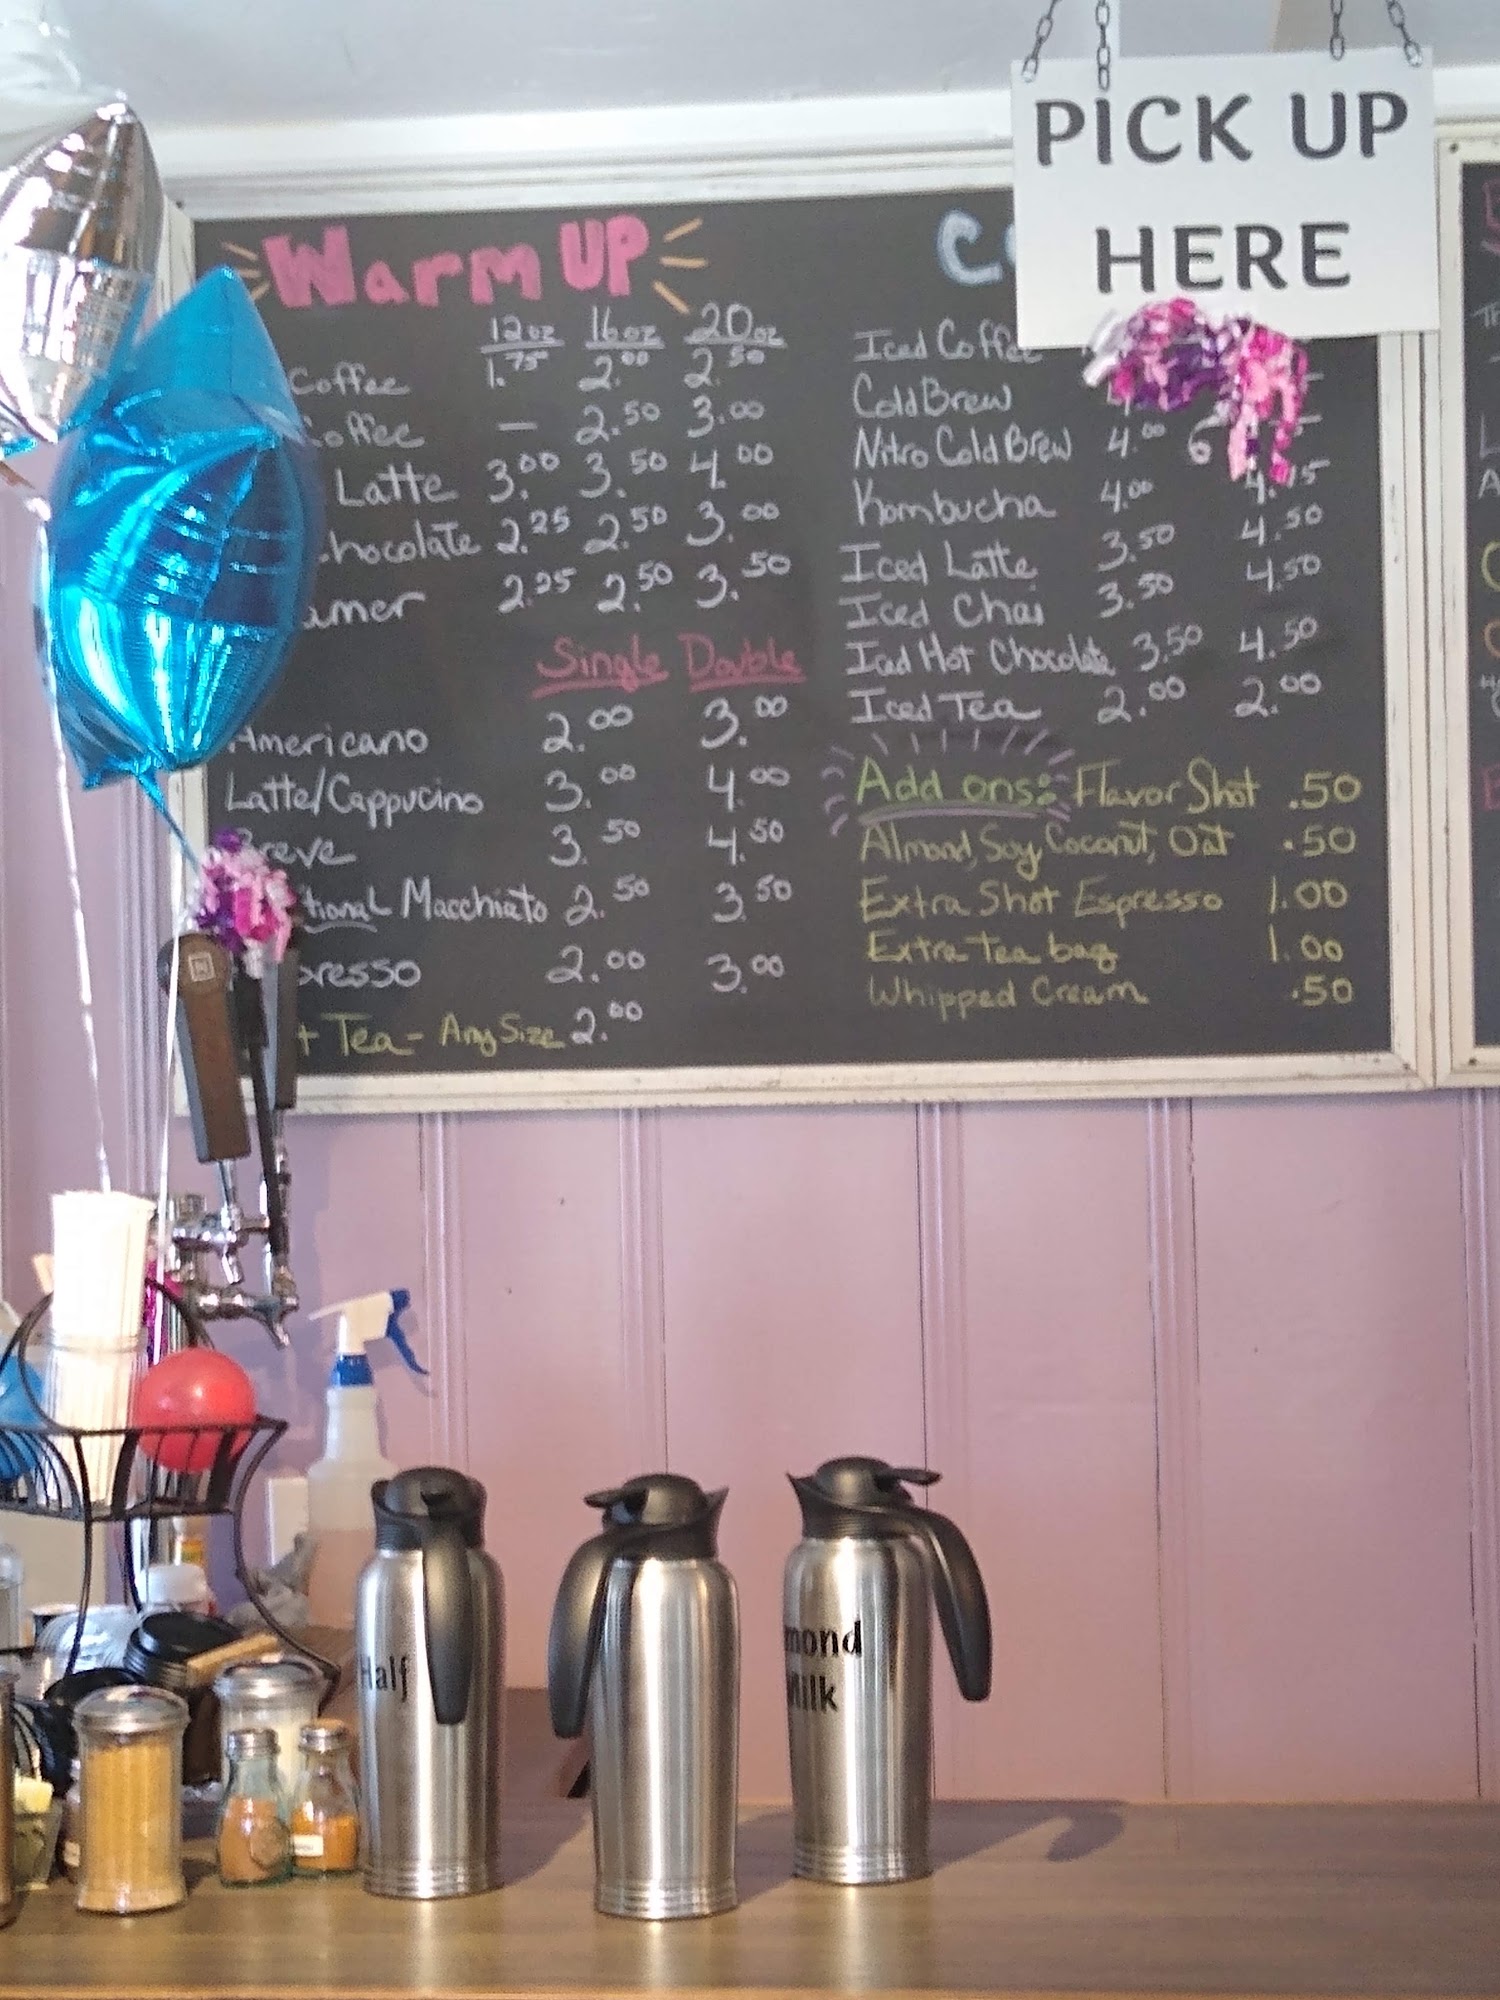 PICK UP
HERE
Warm UP
12oz 16oz 20oz
Coffee 1.75 2.00 2.50
Coffee — 2.50 3.00
Latte 3.00 3.50 4.00
chocolate 2.25 2.50 3.00
amer 2.25 2.50 3.50
Single Double
Americano 2.00 3.00
Latte/Cappucino 3.00 4.00
reve 3.50 4.50
tional Macchiato 2.50 3.50
presso 2.00 3.00
t Tea - Any Size 2.00
Iced Coffee
Cold Brew
Nitro Cold Brew 4.00 6
Kombucha 4.00
Iced Latte 3.50 4.50
Iced Chai 3.50 4.50
Iced Hot Chocolate 3.50 4.50
Iced Tea 2.00 2.00
Add ons: Flavor Shot .50
Almond, Soy, Coconut, Oat .50
Extra Shot Espresso 1.00
Extra Tea bag 1.00
Whipped Cream .50
Half
mond
Milk